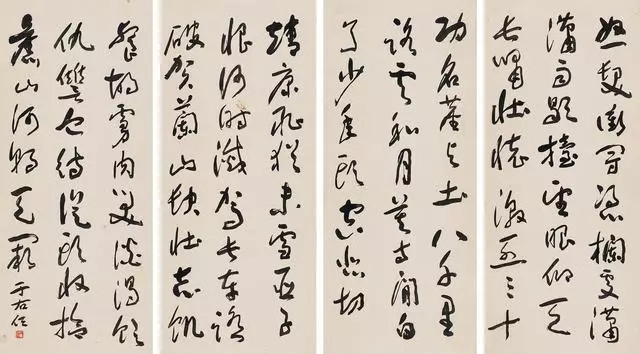 怒髮衝冠憑欄處瀟
瀟雨歇擡望眼仰天
長嘯壯懷激烈三十
功名塵與土八千里
路雲和月莫等閒白
了少年頭空悲切
靖康耻猶未雪臣子
恨何時滅駕長車踏
破賀蘭山缺壯志飢
餐胡虜肉笑談渴飲
仇讐血待從頭收拾
舊山河朝天闕 于右任